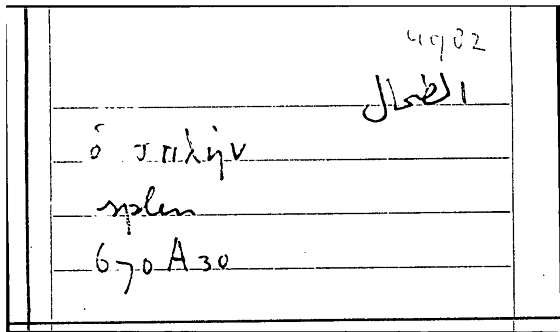 4982
الطحال
ὁ σπλήν
splen
670A30